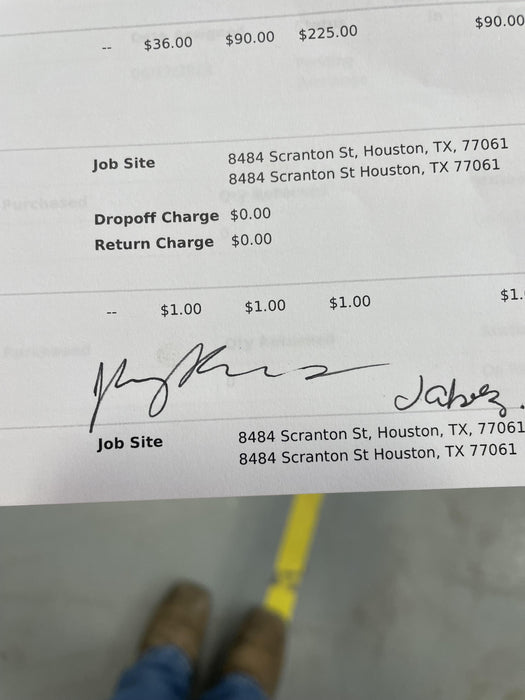 -- $36.00 $90.00 $225.00 $90.00
Job Site 8484 Scranton St, Houston, TX, 77061
8484 Scranton St Houston, TX 77061
Dropoff Charge $0.00
Return Charge $0.00
-- $1.00 $1.00 $1.00 $1.
Jabez.
Job Site 8484 Scranton St, Houston, TX, 77061
8484 Scranton St Houston, TX 77061